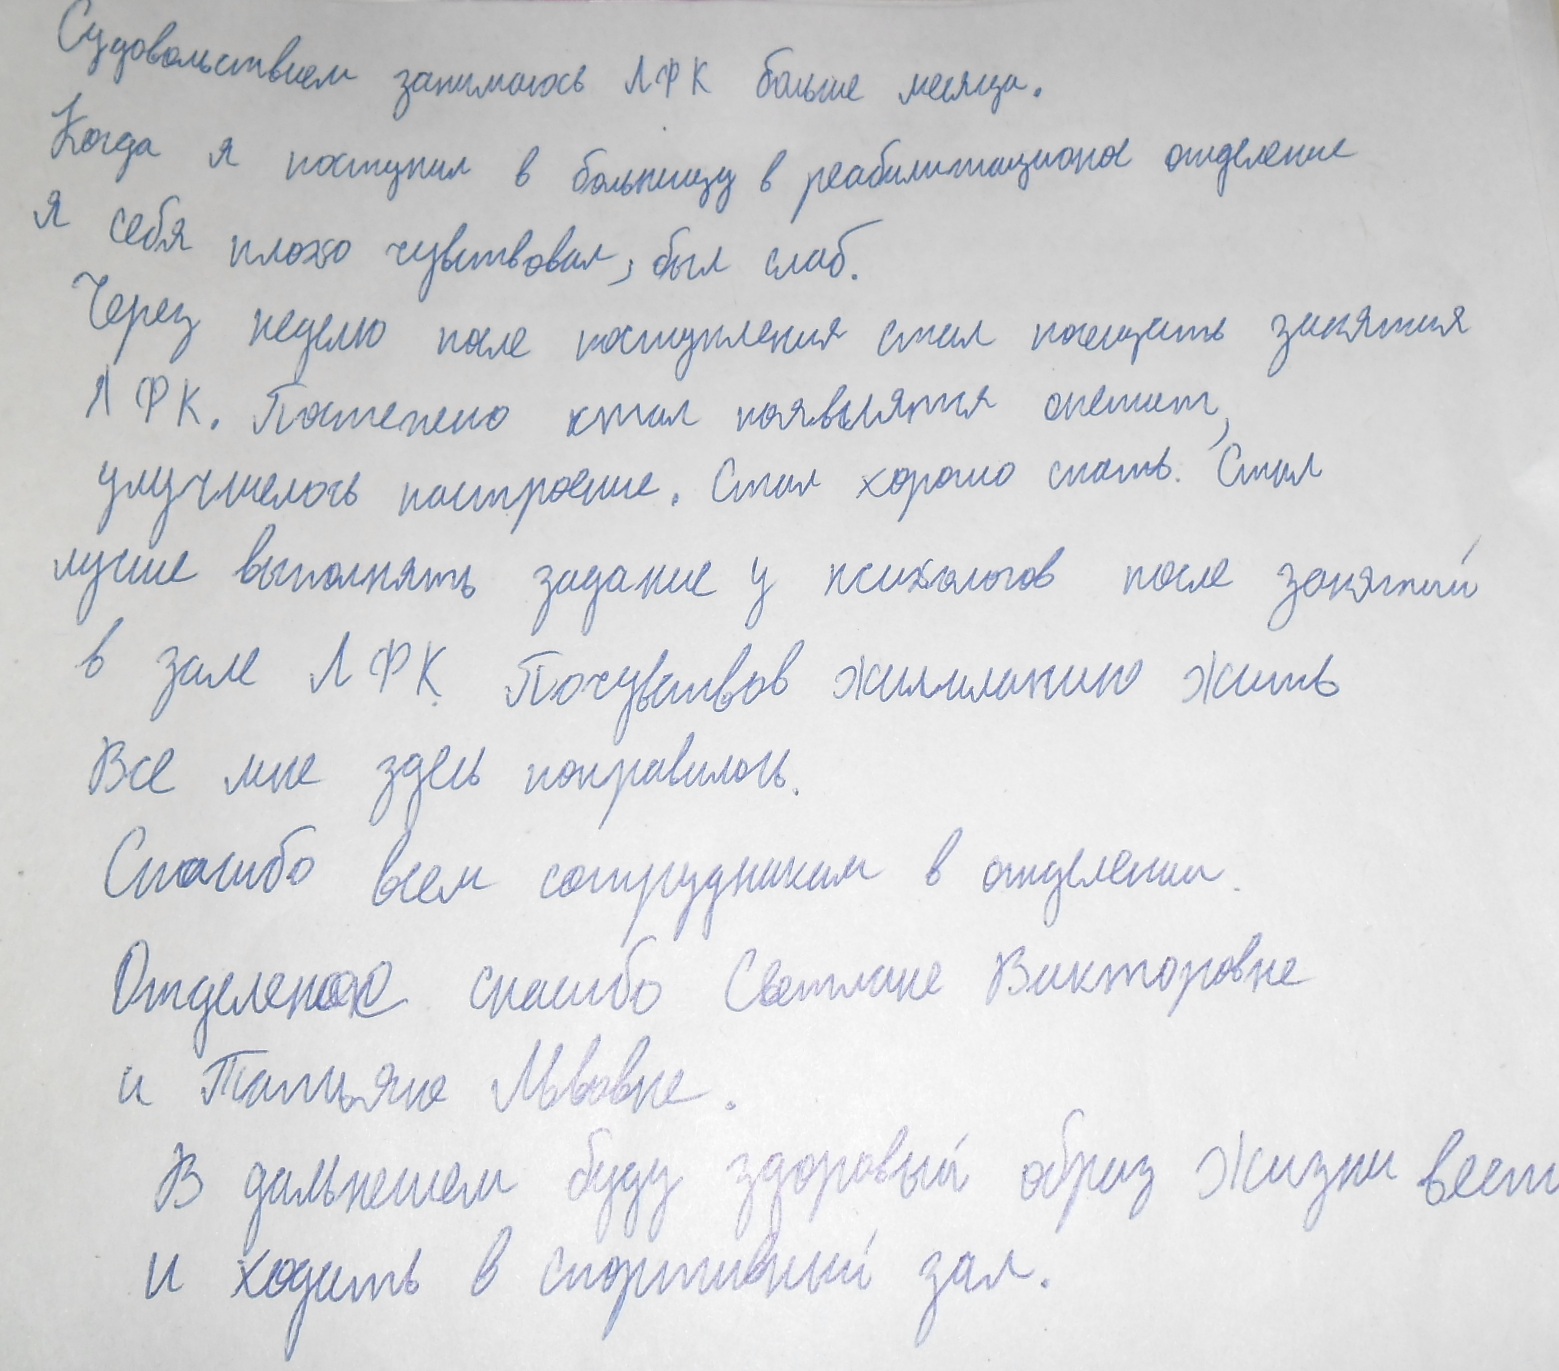 Судовольствием занимаюсь ЛФК больше месяца.
Когда я поступил в больницу в реабилитационое отделение
я себя плохо чувствовал, был слаб.
Через неделю после поступления стал посещать занятия
ЛФК. Постепено стал появлятся опетит,
улучшелось настроение. Стал хорошо спать. Стал
лучше выполнять задание у психологов после занятий
в зале ЛФК. Почувствовов жить
Все мне здесь понравилось.
Спасибо всем сотрудникам в отделении.
спасибо Светлане Викторовне
и Татьяне Львовне.
В дальнешем буду здоровый образ жизни вест
и ходить в спортивный зал.